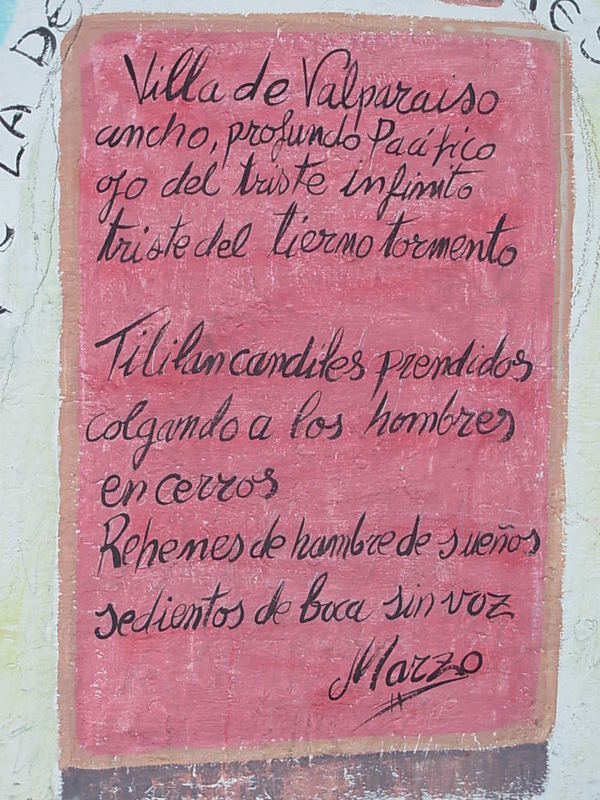 Villa de Valparaiso
ancho, profundo Pacífico
ojo del triste infinito
triste del tierno tormento
Titilan candiles prendidos
colgando a los hombres
en cerros
Rehenes de hambre de sueños
sedientos de boca sin voz
Marzo
LA DE